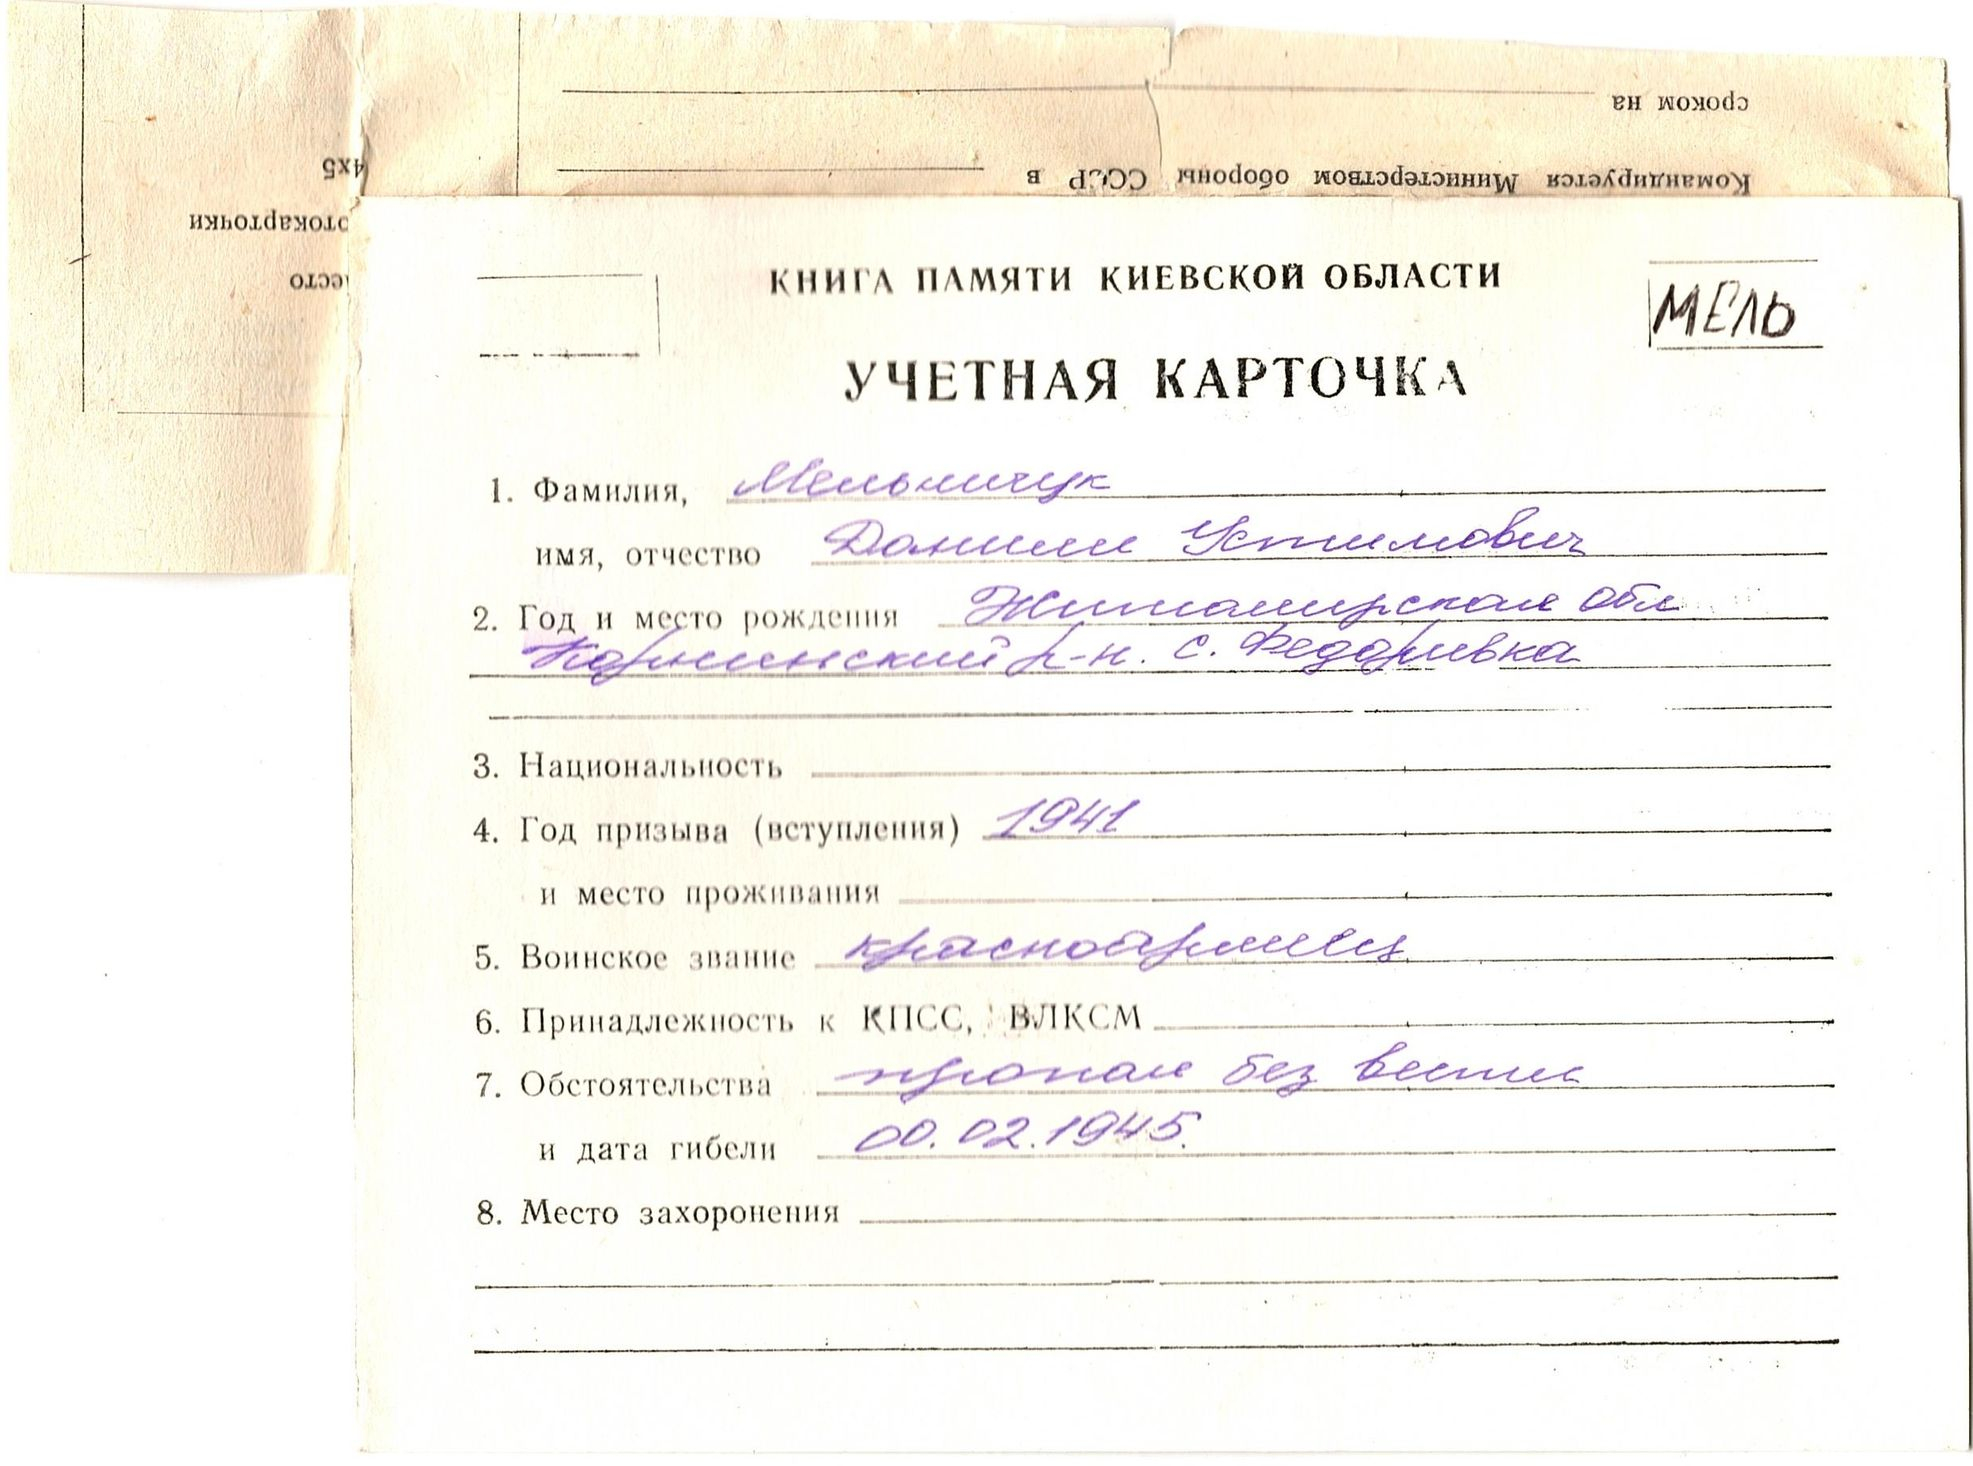 сроком на
Командируется Министерством обороны СССР в
4х5
отокарточки
есто
КНИГА ПАМЯТИ КИЕВСКОЙ ОБЛАСТИ
МЕЛЬ
УЧЕТНАЯ КАРТОЧКА
1. Фамилия, Мельничук
имя, отчество Даниил Устимович
2. Год и место рождения Житомирская обл
Корнинский р-н. с. Федоривка
3. Национальность
4. Год призыва (вступления) 1941
и место проживания
5. Воинское звание красноармеец
6. Принадлежность к КПСС, ВЛКСМ
7. Обстоятельства пропал без вести
и дата гибели 00.02.1945.
8. Место захоронения